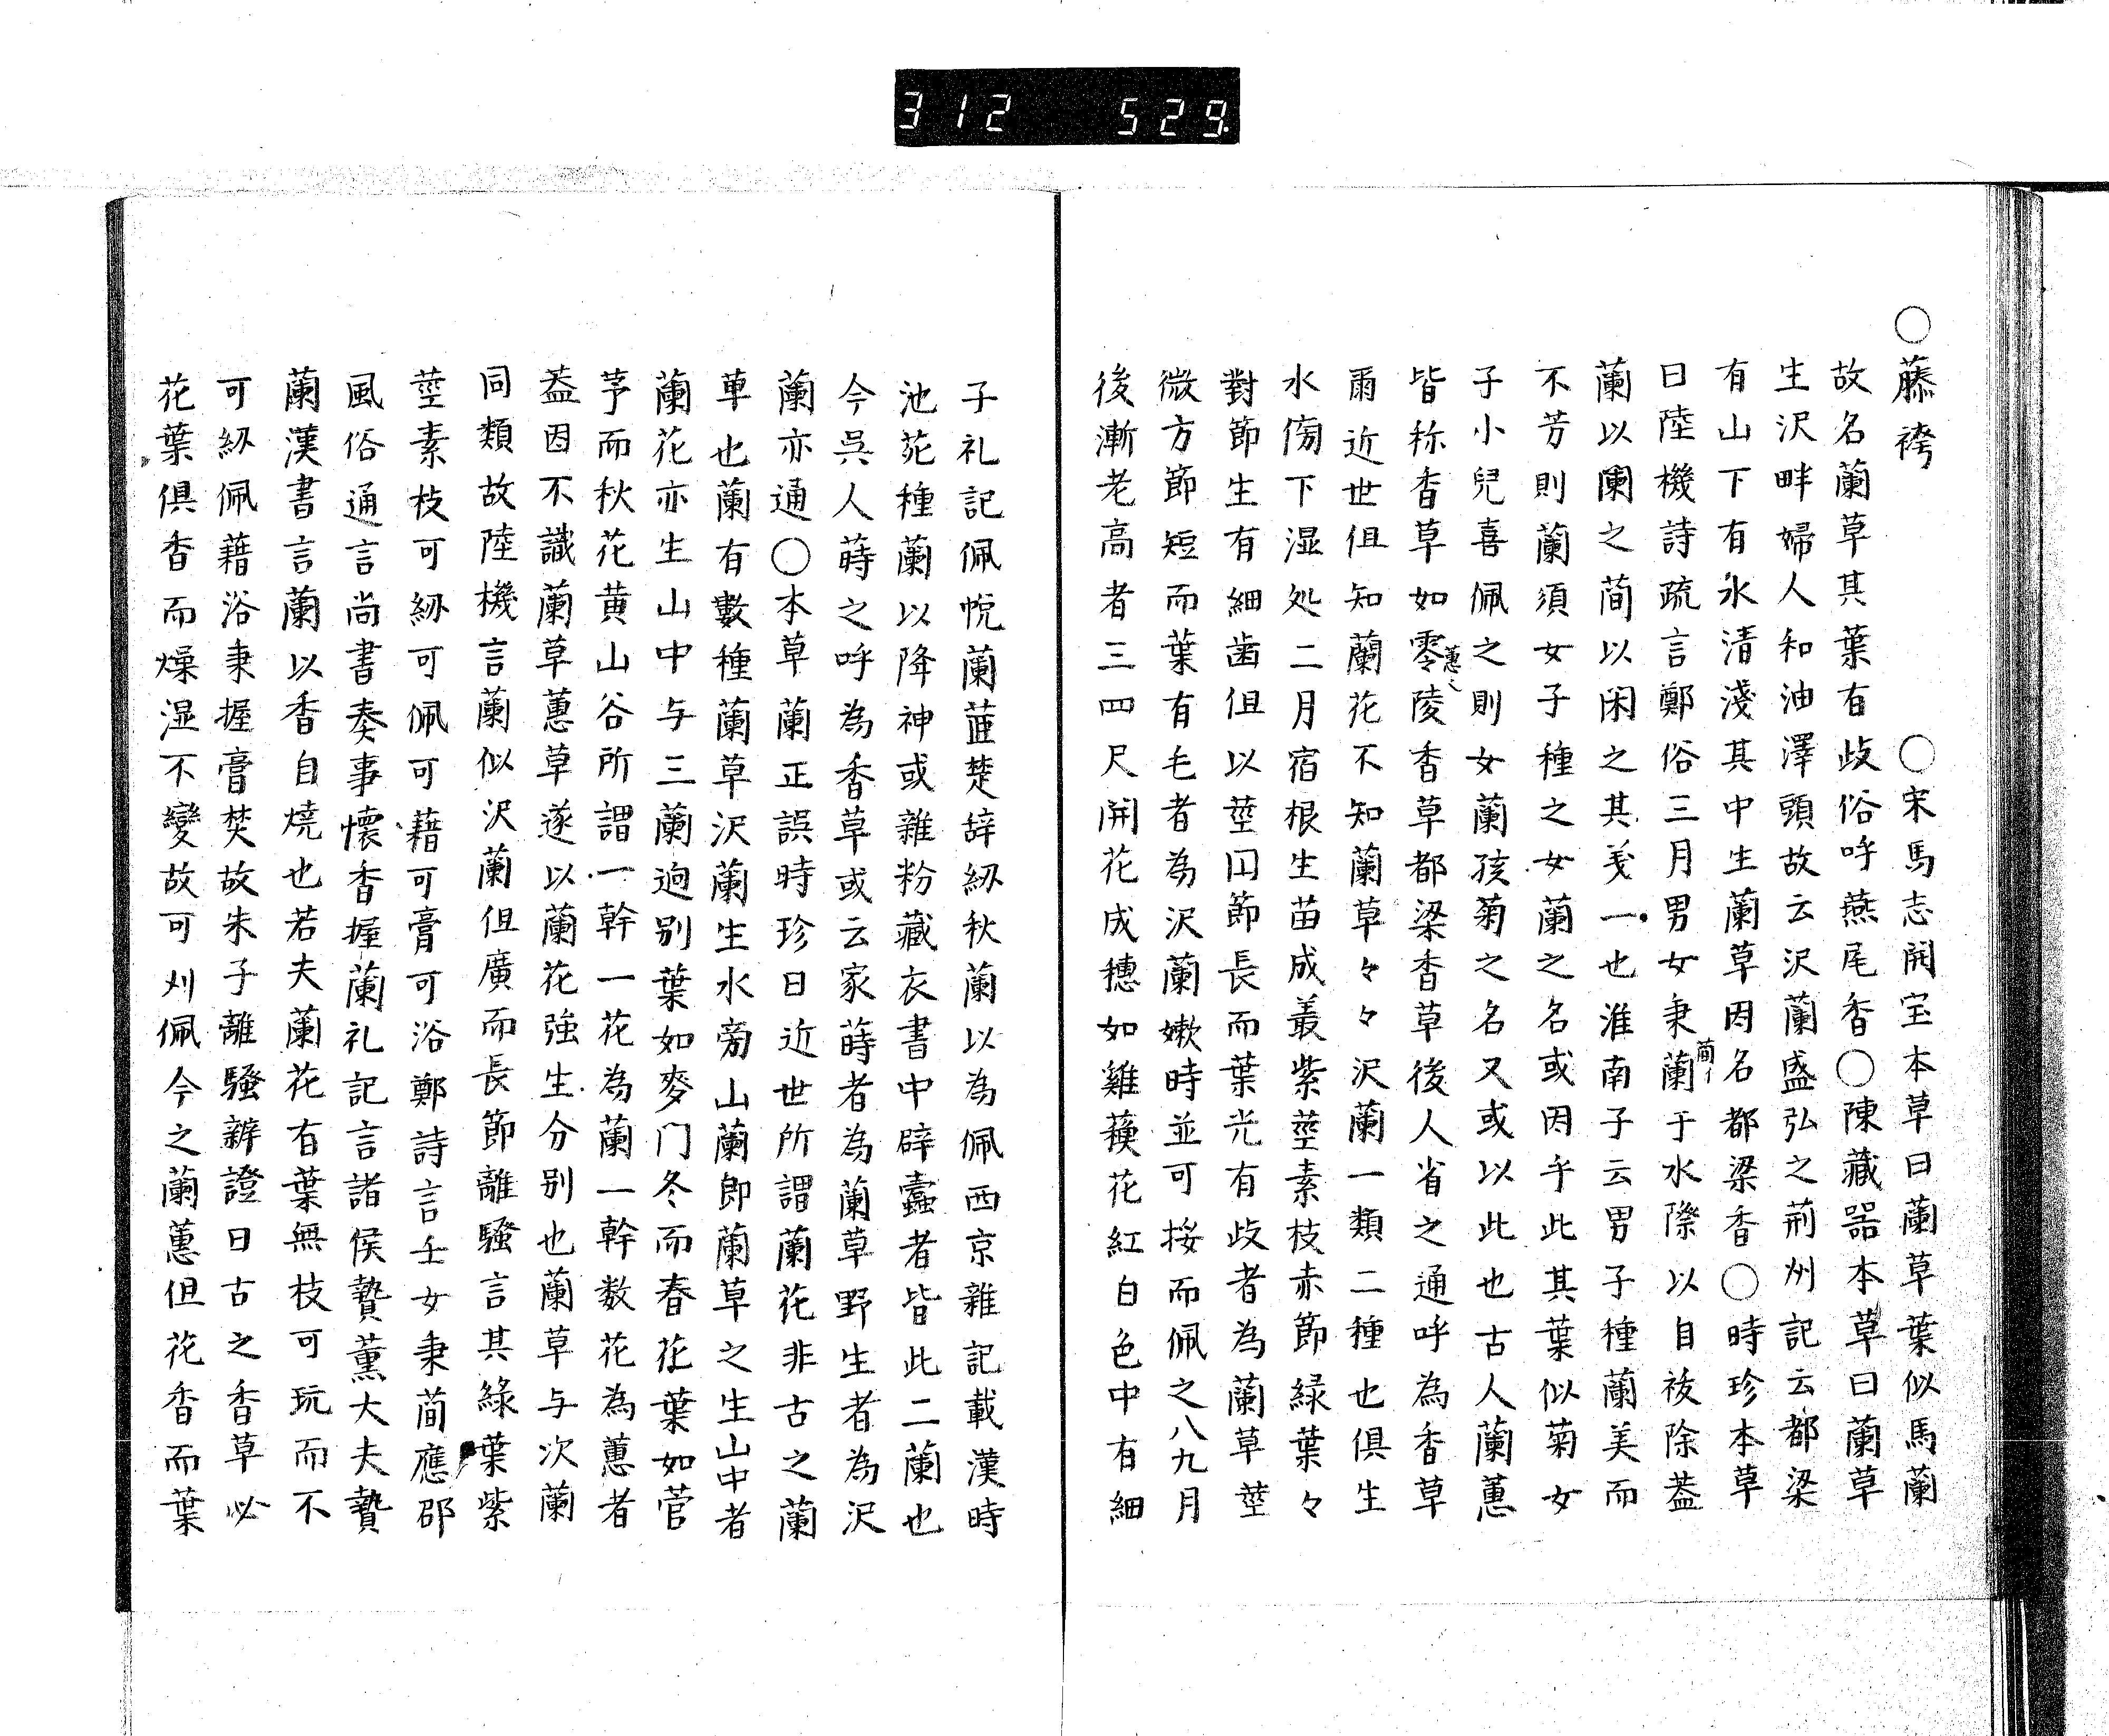 312 529.
○藤袴 ○宋馬志開宝本草曰蘭草葉似馬蘭
故名蘭草其葉有歧俗呼燕尾香○陳藏器本草曰蘭草
生沢畔婦人和油澤頭故云沢蘭盛弘之荊州記云都梁
有山下有水清淺其中生蘭草因名都梁香○時珍本草
曰陸機詩疏言鄭俗三月男女秉蘭于水際以自祓除葢
蘭以闌之蕑以閑之其義一也淮南子云男子種蘭美而
不芳則蘭須女子種之女蘭之名或因乎此其葉似菊女
子小兒喜佩之則女蘭孩菊之名又或以此也古人蘭蕙
皆称香草如零陵香草都梁香草後人省之通呼為香草
爾近世但知蘭花不知蘭草々々沢蘭一類二種也俱生
水傍下湿処二月宿根生苗成叢紫莖素枝赤節緑葉々
對節生有細歯但以莖囗節長而葉光有歧者為蘭草莖
微方節短而葉有毛者為沢蘭嫩時並可挼而佩之八九月
後漸老高者三四尺開花成穗如雞蘓花紅白色中有細
子礼記佩帨蘭茝楚辞紉秋蘭以為佩西京雜記載漢時
池苑種蘭以降神或雜粉藏衣書中辟蠹者皆此二蘭也
今吳人蒔之呼為香草或云家蒔者為蘭草野生者為沢
蘭亦通○本草蘭正誤時珍曰近世所謂蘭花非古之蘭
草也蘭有數種蘭草沢蘭生水旁山蘭即蘭草之生山中者
蘭花亦生山中与三蘭逈别葉如麥门冬而春花葉如菅
芧而秋花黄山谷所謂一幹一花為蘭一幹数花為蕙者
葢因不識蘭草蕙草遂以蘭花強生分别也蘭草与次蘭
同類故陸機言蘭似沢蘭但廣而長節離騒言其綠葉紫
莖素枝可紉可佩可藉可膏可浴鄭詩言士女秉蕑應邵
風俗通言尚書奏事懷香握蘭礼記言諸侯贄薫大夫贄
蘭漢書言蘭以香自燒也若夫蘭花有葉無枝可玩而不
可紉佩藉浴秉握膏焚故朱子離騒辨證曰古之香草必
花葉俱香而燥湿不變故可刈佩今之蘭蕙但花香而葉